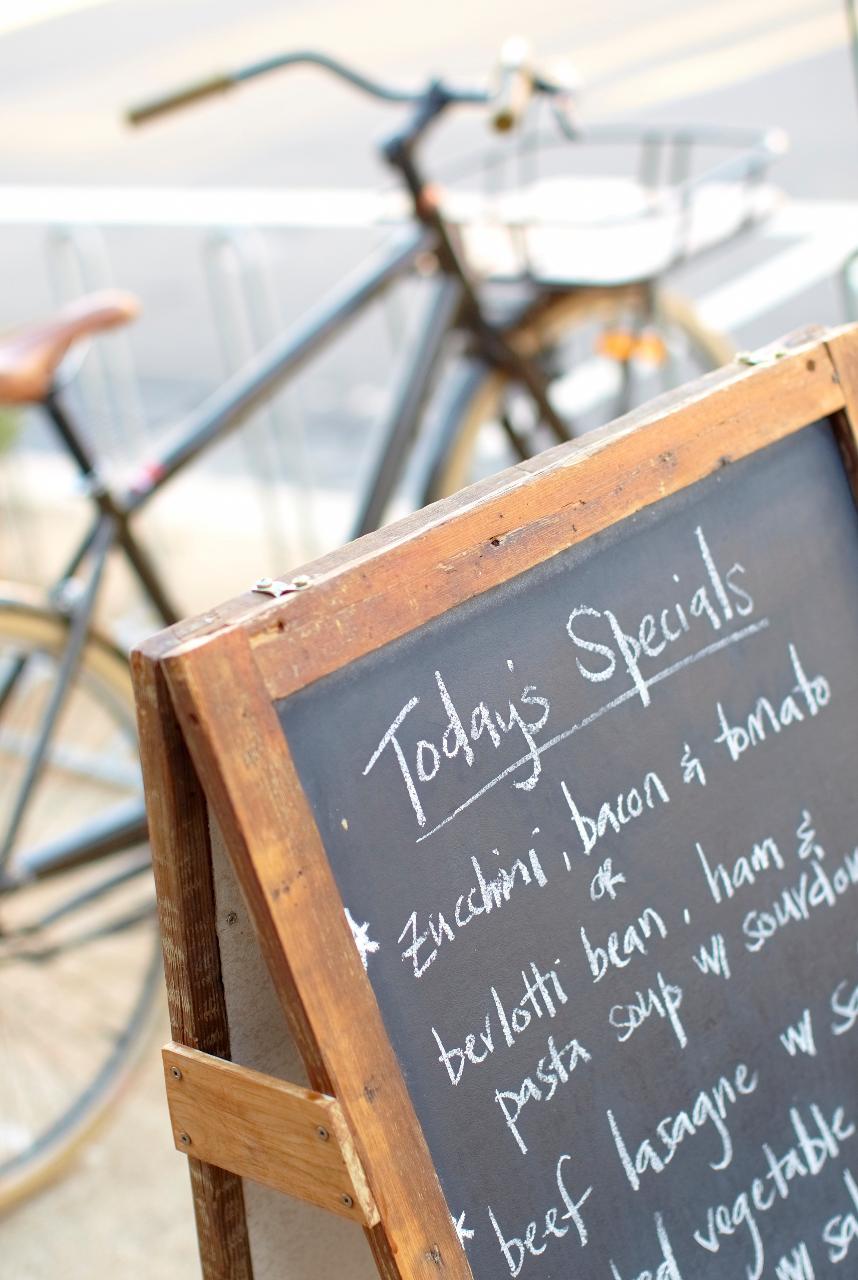 Today's Specials
* Zucchini, bacon & tomato
or
berlotti bean, ham &
pasta soup w/
* beef lasagne w/
vegetable
w/